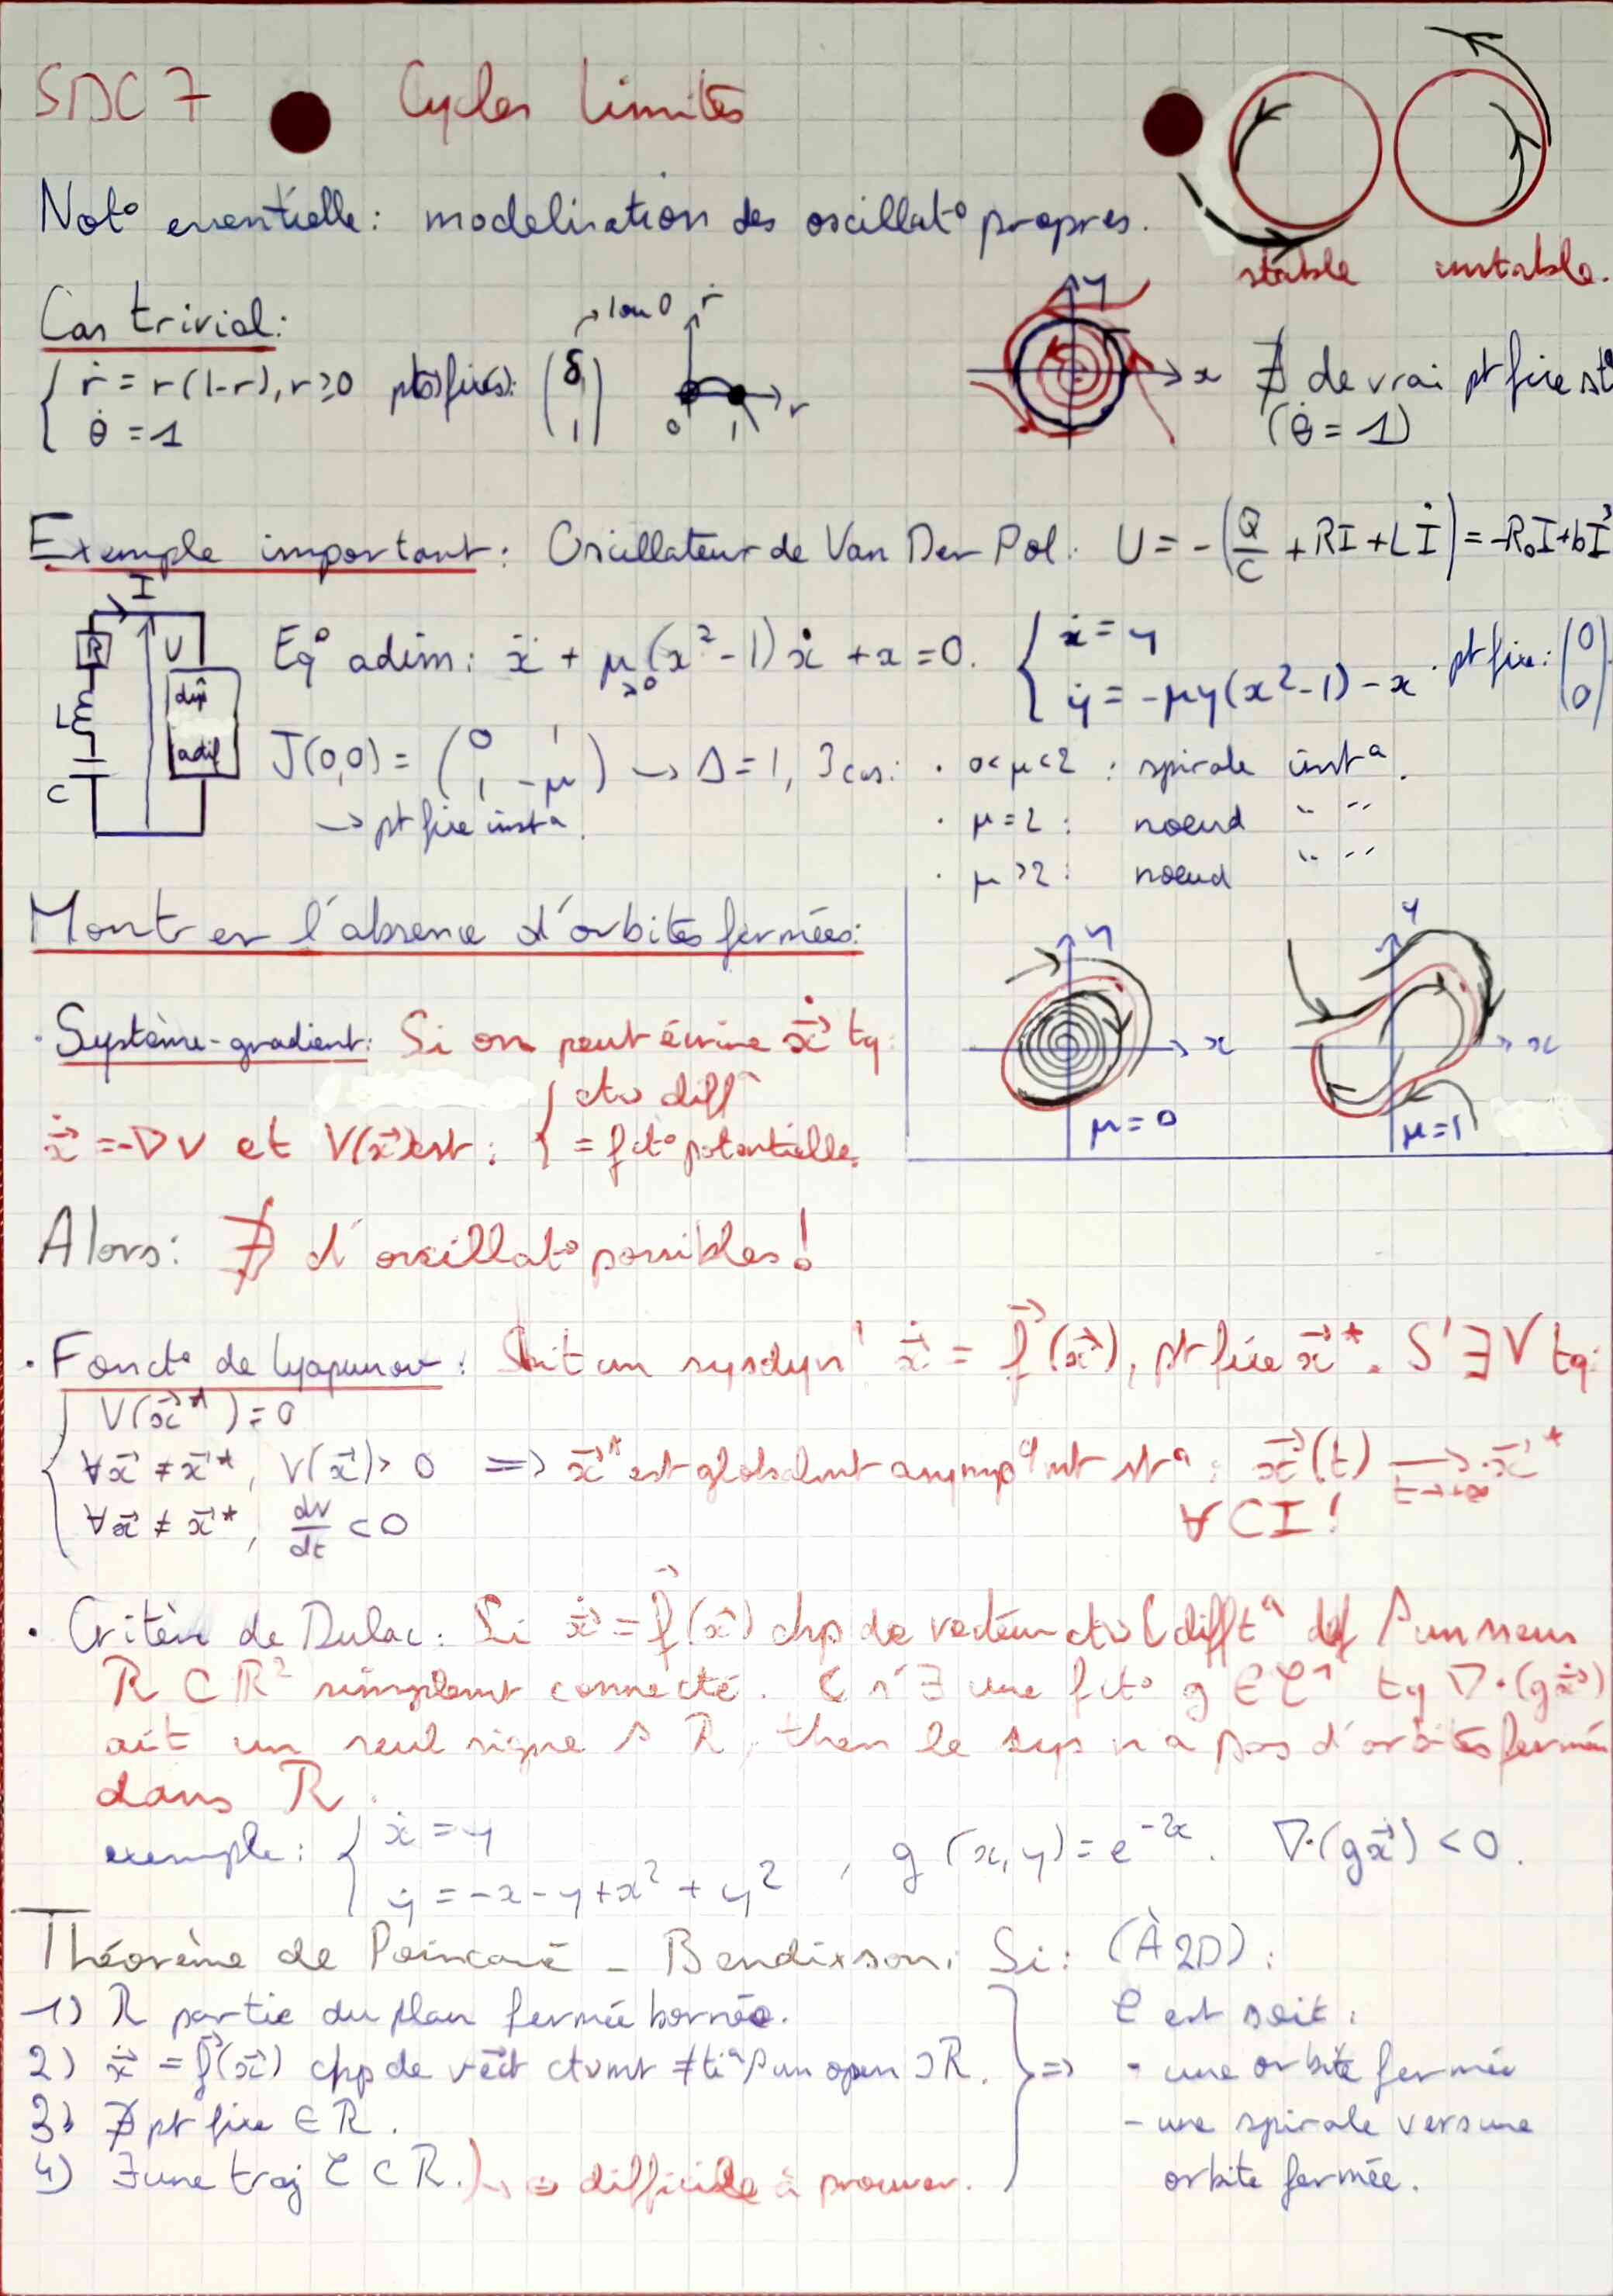 SDC 7 Cycles limites
Not° essentielle: modelisation des oscillat° propres.
stable instable.
Cas trivial:
{ ṙ = r(1-r), r≥0
θ̇ = 1
pts fixes: 1 ou 0
ṙ
0 1 r
y
x
∄ de vrai pt fixe
(θ̇ = 1)
Exemple important: Oscillateur de Van Der Pol: U = -(Q/C + RI + Lİ) = -R₀I + bI³
I
R U
L
C
dip
actif
Eq° adim: ẍ + μ(x²-1)ẋ + x = 0.
>0
{ ẋ = y
ẏ = -μy(x²-1) - x . pt fixe: (0 0)
J(0,0) = (0 1 1 -μ) → Δ=1, 3 cas: · 0<μ<2 : spirale instᵃ.
→ pt fixe instᵃ.
· μ=2 : noeud " "
· μ>2 : noeud " "
Montrer l'absence d'orbites fermées:
y
x
μ=0
y
x
μ=1
· Système-gradient: Si on peut écrire ẋ⃗ tq:
ẋ⃗ = -∇V et V(x⃗) est : { ct° diffᵃ
= fct° potentielle.
Alors: ∄ d'oscillat° possibles!
· Fonct° de Lyapunov: Soit un sysdyn ẋ⃗ = f⃗(x⃗), pt fixe x⃗*. S'∃ V tq:
{ V(x⃗*) = 0
∀x⃗ ≠ x⃗*, V(x⃗) > 0 ⇒ x⃗* est globalmt asympᵠmt stᵃ: x⃗(t) → x⃗*
t→+∞
∀x⃗ ≠ x⃗*, dV/dt < 0
∀ CI!
· Critère de Dulac: Si ẋ⃗ = f⃗(x⃗) chp de vecteur ct° difftᵃ def
R ⊂ ℝ² simplemt connecté. & s'∃ une fct° g ∈ C¹ tq ∇·(gẋ⃗)
ait un seul signe s R, then le sys n'a pas d'orbites fermées
dans R.
exemple: { ẋ = y
ẏ = -x-y+x²+y²
, g(x,y) = e⁻²ˣ. ∇·(gẋ⃗) < 0.
Théorème de Poincaré - Bendixson: Si: (À 2D):
1) R partie du plan fermée bornée.
2) ẋ⃗ = f⃗(x⃗) chp de vect ctumt ≠tiᵃ s un open ⊃ R.
3) ∄ pt fixe ∈ R.
4) ∃ une traj C ⊂ R.) → difficile à prouver.
⇒ C est soit:
- une orbite fermée
- une spirale vers une
orbite fermée.